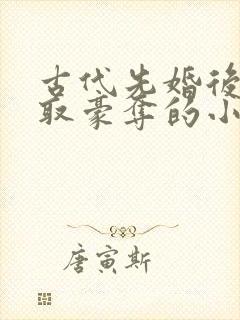 古代先婚後
取豪奪的小
唐寅斯